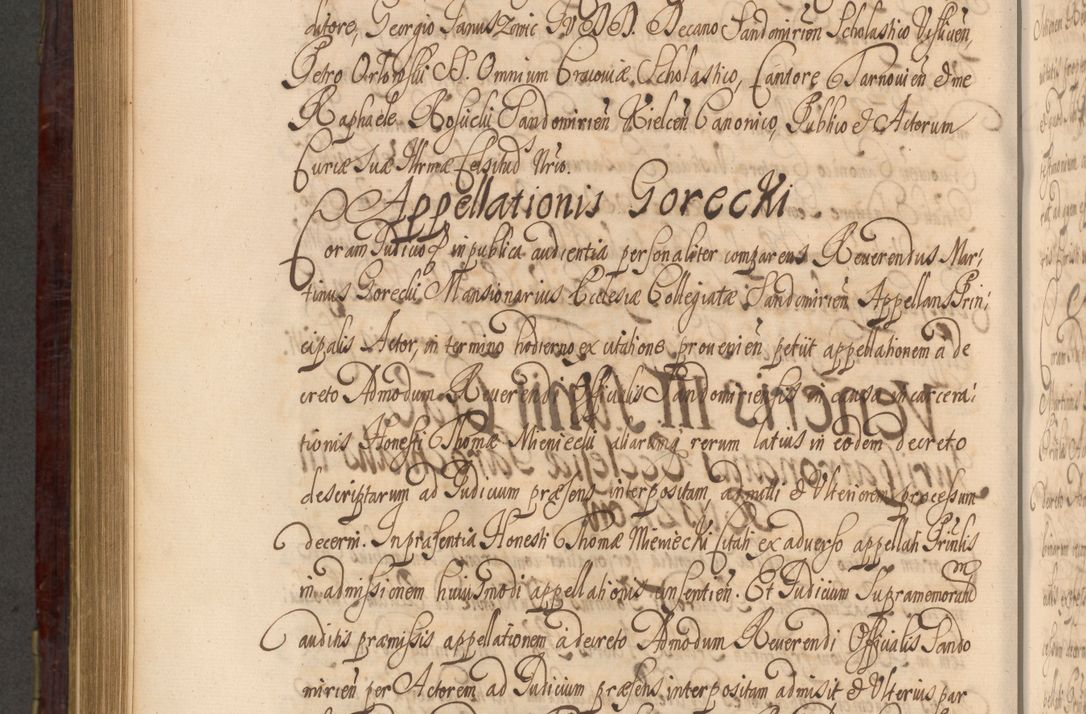 ditore, Georgio Januszowic J V D D. Decano Sandomirien Scholastico Vislicien,
Petro Orlowski SS. Omnium Cracoviæ, Scholastico, Cantore Tarnovien & me
Raphaele Rosucki Sandomirien Kielcen Canonico, Publico & Actorum
Curiæ Suæ Illrmæ Celsitud Nrio.
Appellationis Gorecki
Coram Judicio & in publica audientia personaliter comparens Reverendus Mar-
tinus Gorecki, Mansionarius Ecclesiæ Collegiatæ Sandomirien Appellans Prin-
cipalis Actor, in termino hodierno ex citatione provenien petiit appellationem a de
creto Admodum Reverendi Officialis Sandomiriensis in causa incarcera-
tionis Honesti Thomæ Mieniecki aliarumq rerum latius in eodem decreto
descriptarum ad Judicium præsens interpositam, admitti & Ulteriorem processum
decerni. In præsentia Honesti Thomæ Mieniecki citati ex adverso appellati Prinlis
in admissionem huiusmodi appellationis consentien. Et Judicium Supramemoratū
auditis præmissis appellationem à decreto Admodum Reverendi Officialis Sando
mirien per Actorem ad Judicium præsens interpositam admisit & Ulterius par